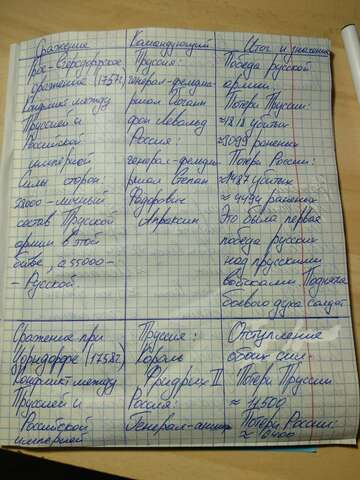 Сражение
Командующий
Итог и значение
Грос-Егерсдорфское
сражение (1757г.)
Конфликт между
Пруссией и
Российской
империей
Силы сторон:
28000-личный
состав Прусской
армии в этой
битве, а 55000-
- Русской.
Пруссия:
генерал-фельдма-
ршал Иоганн
фон Левальд
Россия:
генерал-фельдма-
ршал Степан
Фёдорович
Апраксин
Победа русской
армии
Потери Пруссии:
≈1818 убитых
≈3099 раненых
Потери России:
≈1487 убитых
≈ 4494 раненых
Это была первая
победа русских
над прусскими
войсками. Подняла
боевого духа солдат
Сражение при
Цорндорфе (1758г.)
Конфликт между
Пруссией и
Российской
империей
Пруссия:
Король
Фридрих II
Россия:
Генерал-аншеф
Отступление
обоих сил.
Потери Пруссии
≈ 11500
Потери России:
≈ 16400